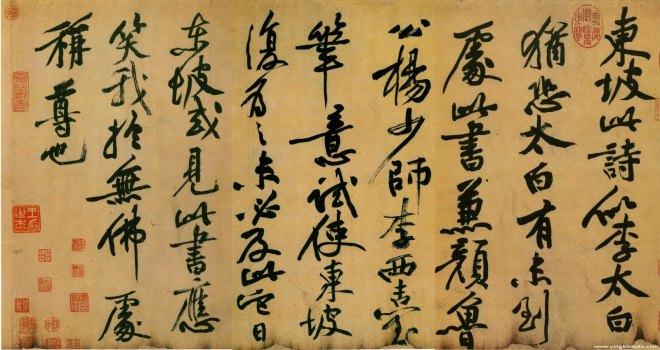 東坡此詩似李太白
猶恐太白有未到
處此書兼顏魯
公楊少師李西臺
筆意試使東坡
復為之未必及此它日
東坡或見此書應
笑我於無佛處
稱尊也
www.yingbishufa.com